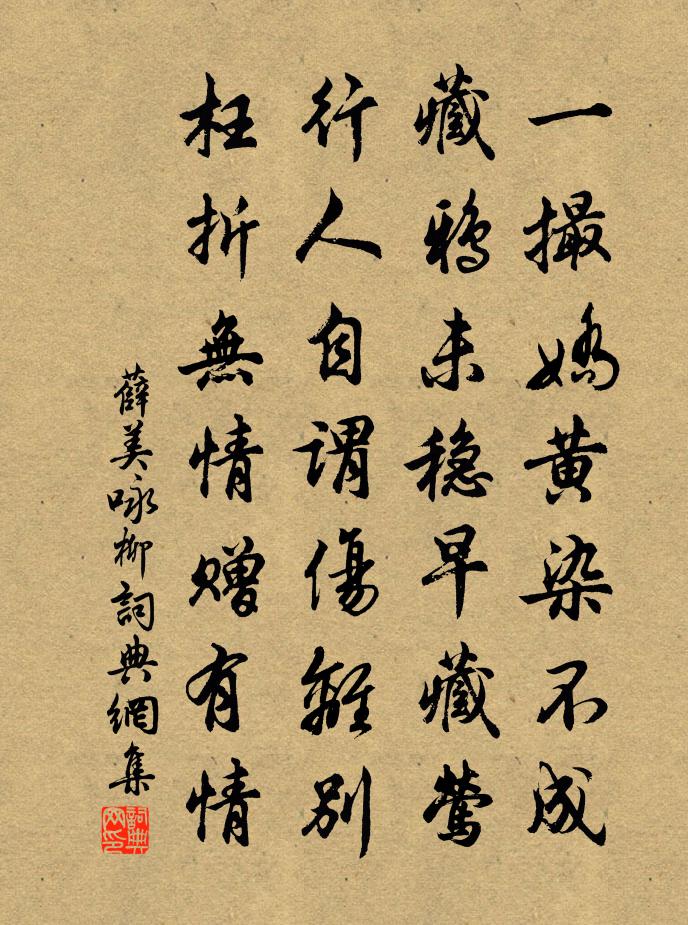 一撮嬌黄染不成
藏鴉未稳早藏鶯
行人自謂傷離别
枉折無情赠有情
薛美咏柳詞典網集
詞典网印